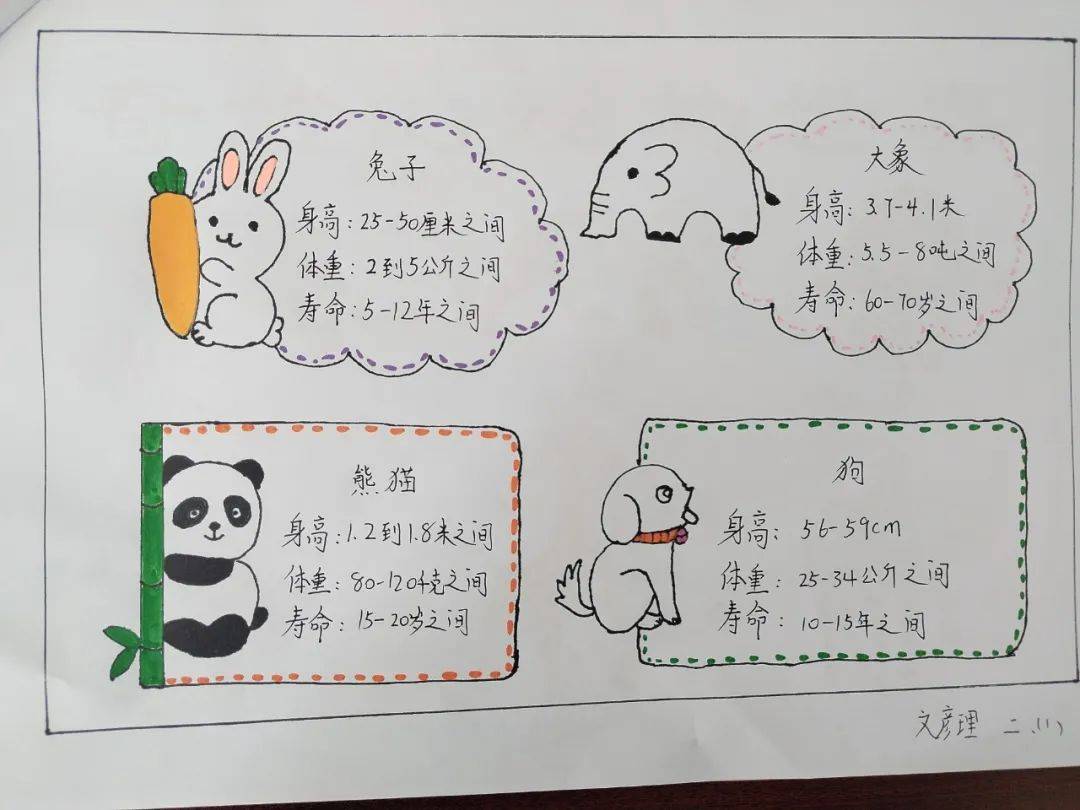 兔子
身高:25-50厘米之间
体重:2到5公斤之间
寿命:5-12年之间
大象
身高:3.7-4.1米
体重:5.5-8吨之间
寿命:60-70岁之间
熊猫
身高:1.2到1.8米之间
体重:80-120千克之间
寿命:15-20岁之间
狗
身高:56-59cm
体重:25-34公斤之间
寿命:10-15年之间
文彦理 二.(1)